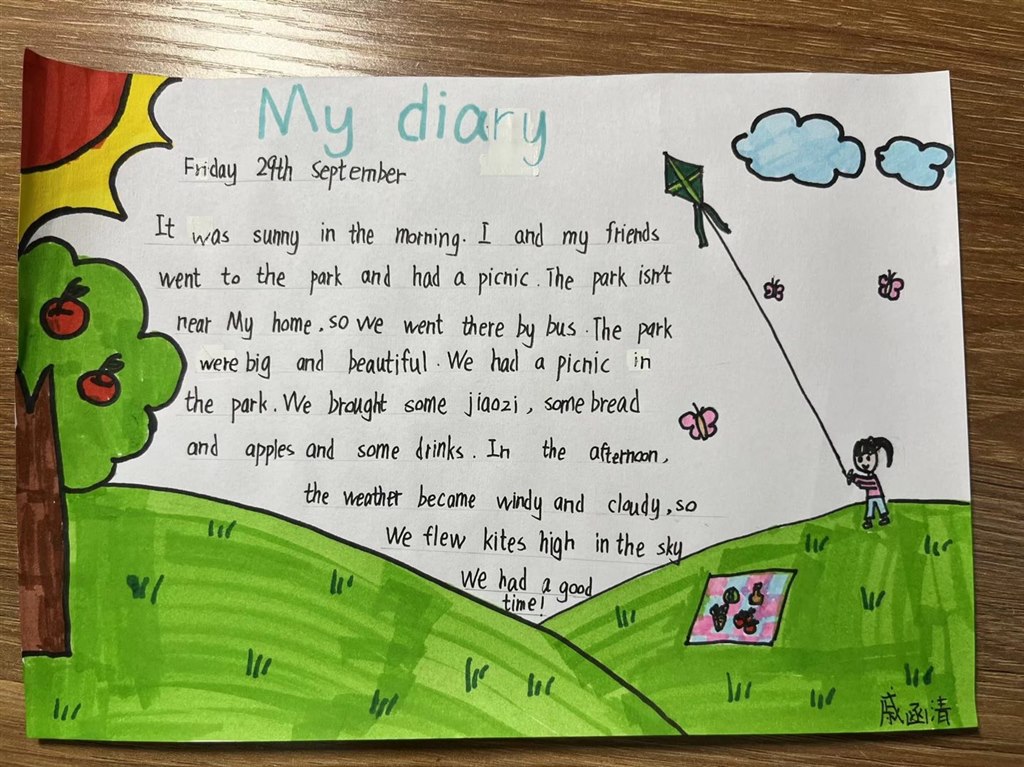 My diary
Friday 29th September
It was sunny in the morning. I and my friends
went to the park and had a picnic. The park isn't
near My home, so we went there by bus. The park
were big and beautiful. We had a picnic in
the park. We brought some jiaozi, some bread
and apples and some drinks. In the afternoon,
the weather became windy and cloudy, so
We flew kites high in the sky
We had a good
time!
戚函清